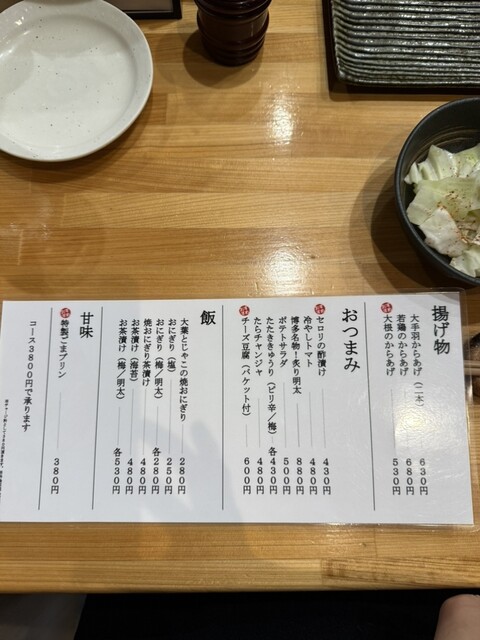 揚げ物
大手羽からあげ（二本） 630円
若鶏のからあげ 680円
大根のからあげ 530円
おつまみ
セロリの酢漬け 430円
冷やしトマト 480円
博多名物！炙り明太 880円
ポテトサラダ 500円
たたききゅうり（ピリ辛／梅） 各430円
たらチャンジャ 480円
チーズ豆腐（バケット付） 600円
飯
大葉とじゃこの焼おにぎり 280円
おにぎり（塩） 250円
おにぎり（梅／明太） 各280円
焼おにぎり茶漬け 480円
お茶漬け（海苔） 480円
お茶漬け（梅／明太） 各530円
甘味
特製ごまプリン 380円
コース3800円で承ります